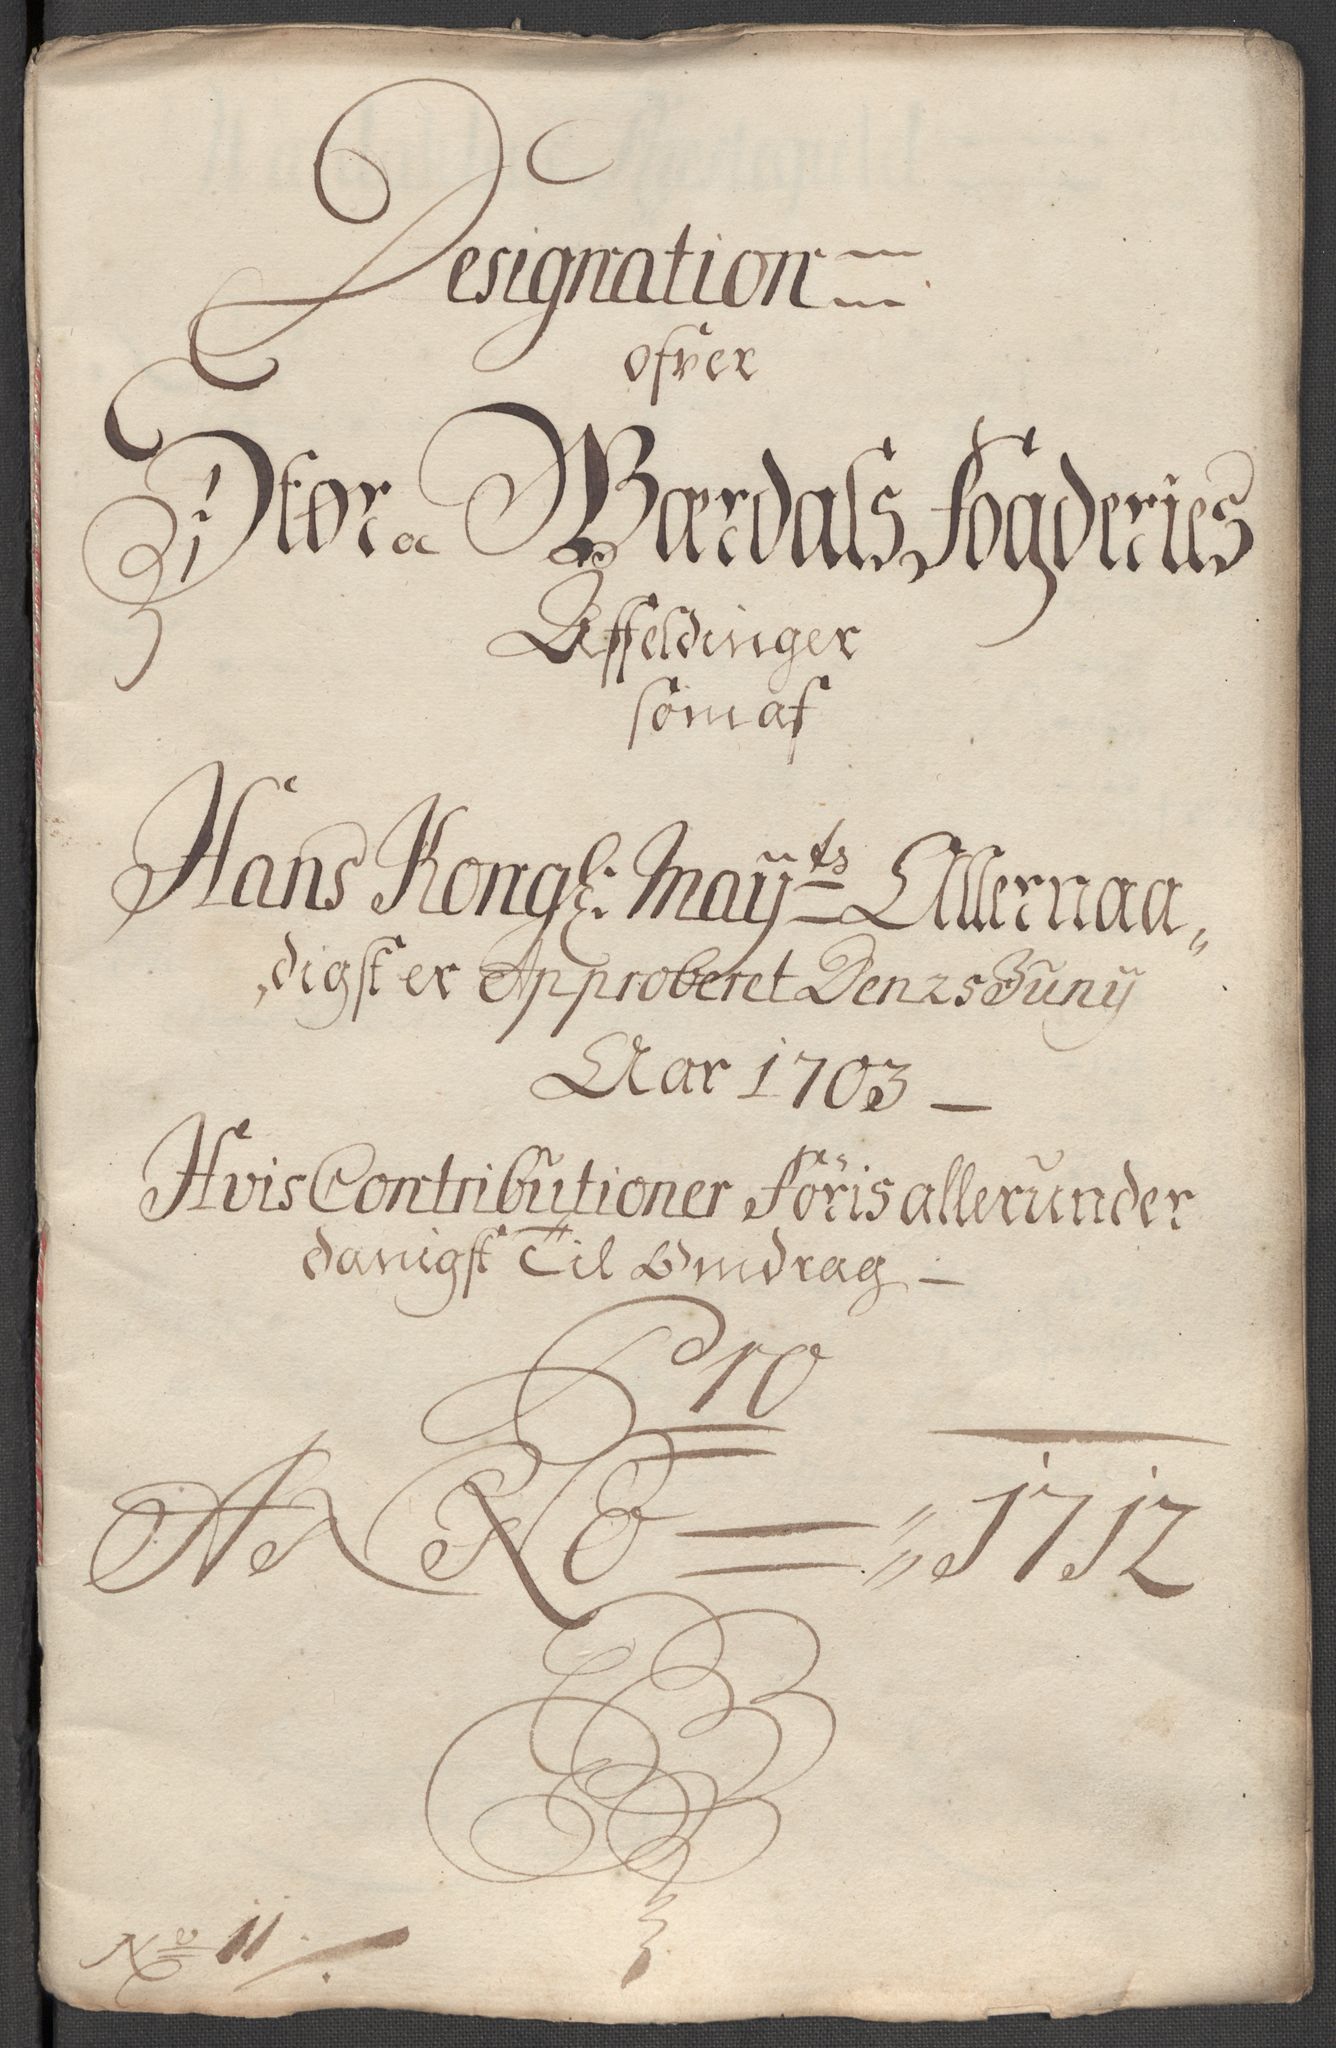 Designation
ofver
Stør oc Værdals Fogderies
Affeldinger
som af
Hans Kongl: Mayts Allernaa„
„digst er Approberet Den 25 Juny
Aar 1703 —
Hvis Contributioner föris allerunder
danigst Til Vmdrag —
Pro
ANNO = 1712
No 11.